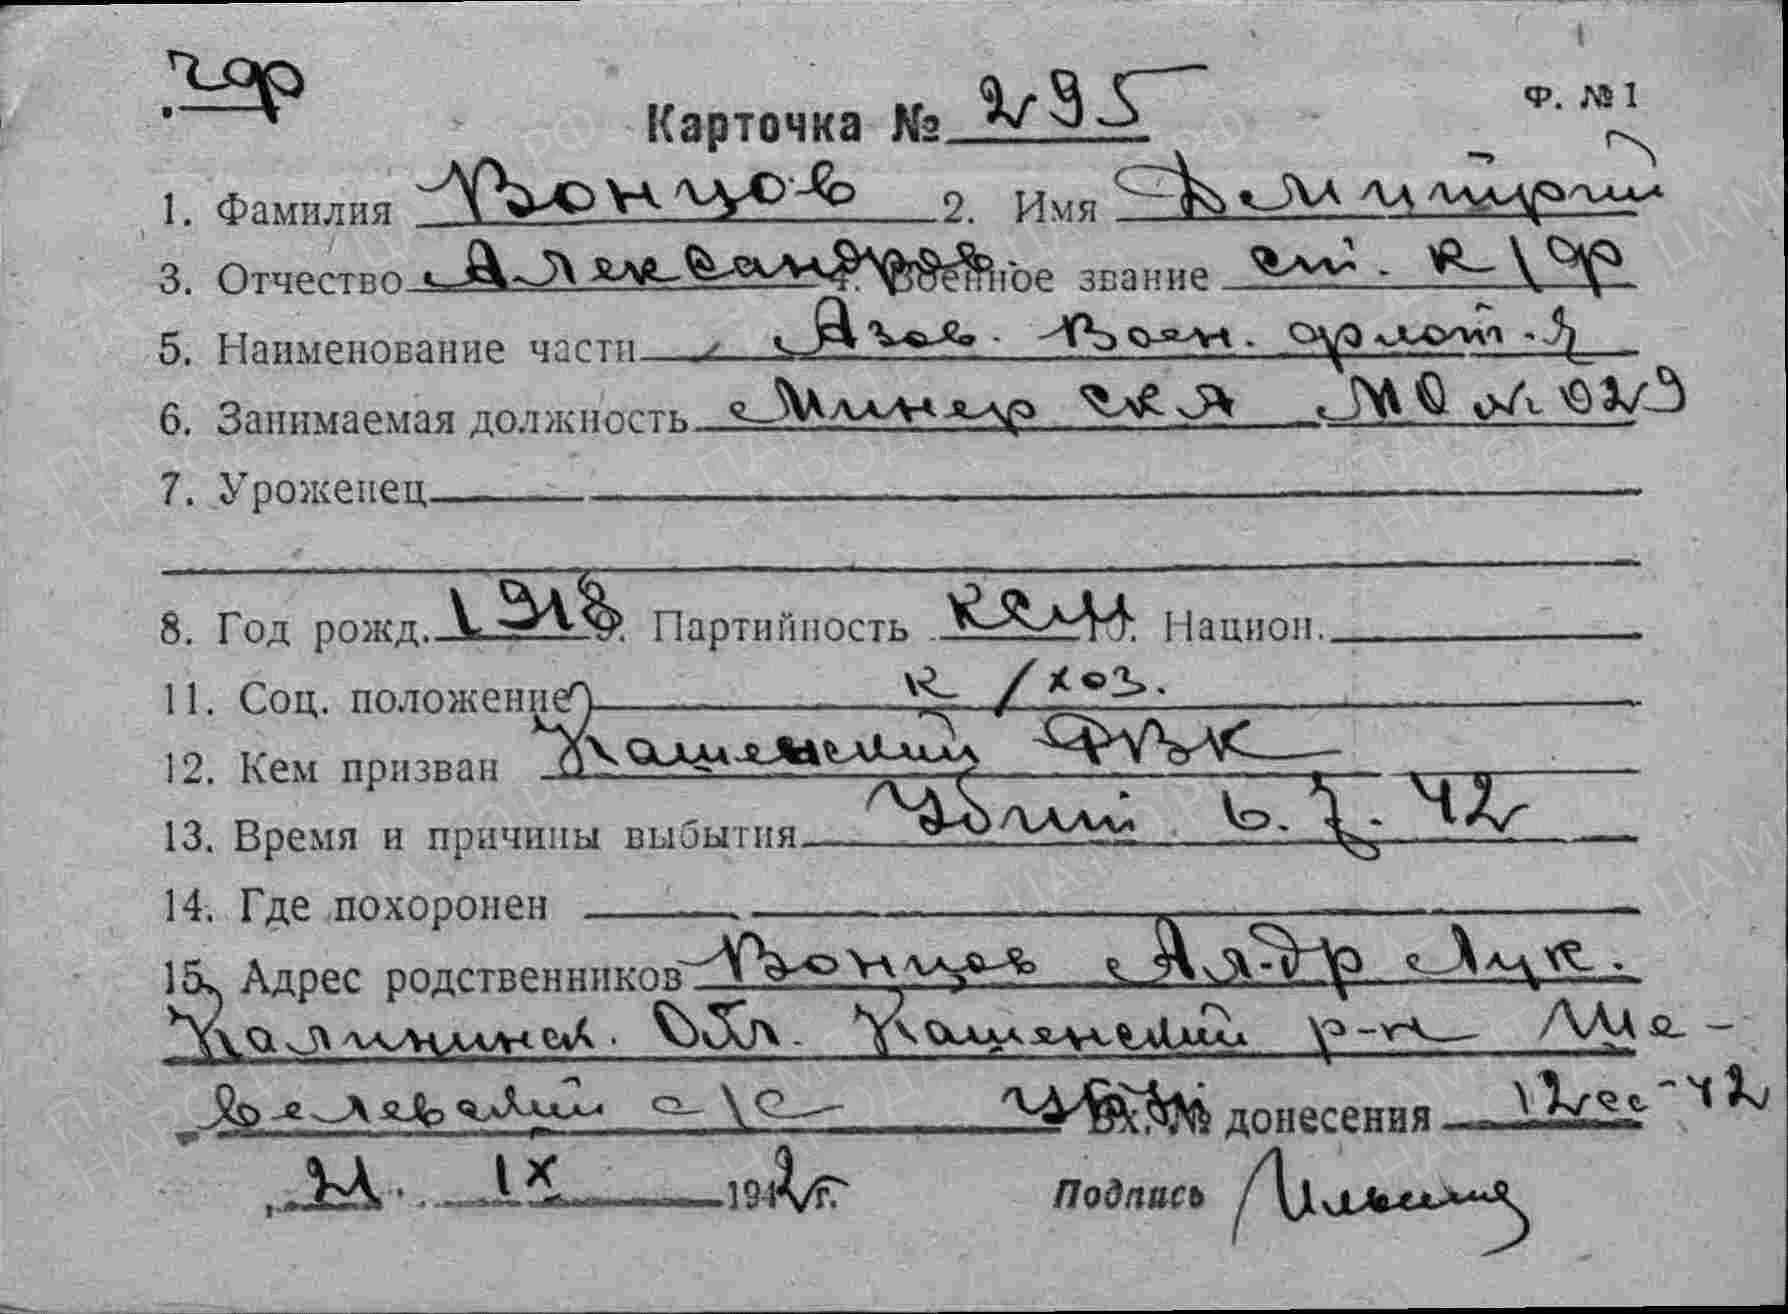 чф
Карточка № 295
Ф. № 1
1. Фамилия Вонцов 2. Имя Демитрий
3. Отчество Александров. 4. Военное звание ст. к/ф
5. Наименование части Азов. Воен. флот-я
6. Занимаемая должность Минер СКА МО № 029
7. Уроженец
8. Год рожд. 1918 9. Партийность ксм 10. Национ.
11. Соц. положение к/хоз.
12. Кем призван Кашенский РВК
13. Время и причины выбытия Убит 6.Z.42
14. Где похоронен
15. Адрес родственников Вонцов Ал-др Лук.
Калининск. Обл. Кашенский р-н Ше-
велевский с/с Вх. № донесения 12сс-42
21. IX 1942г. Подпись